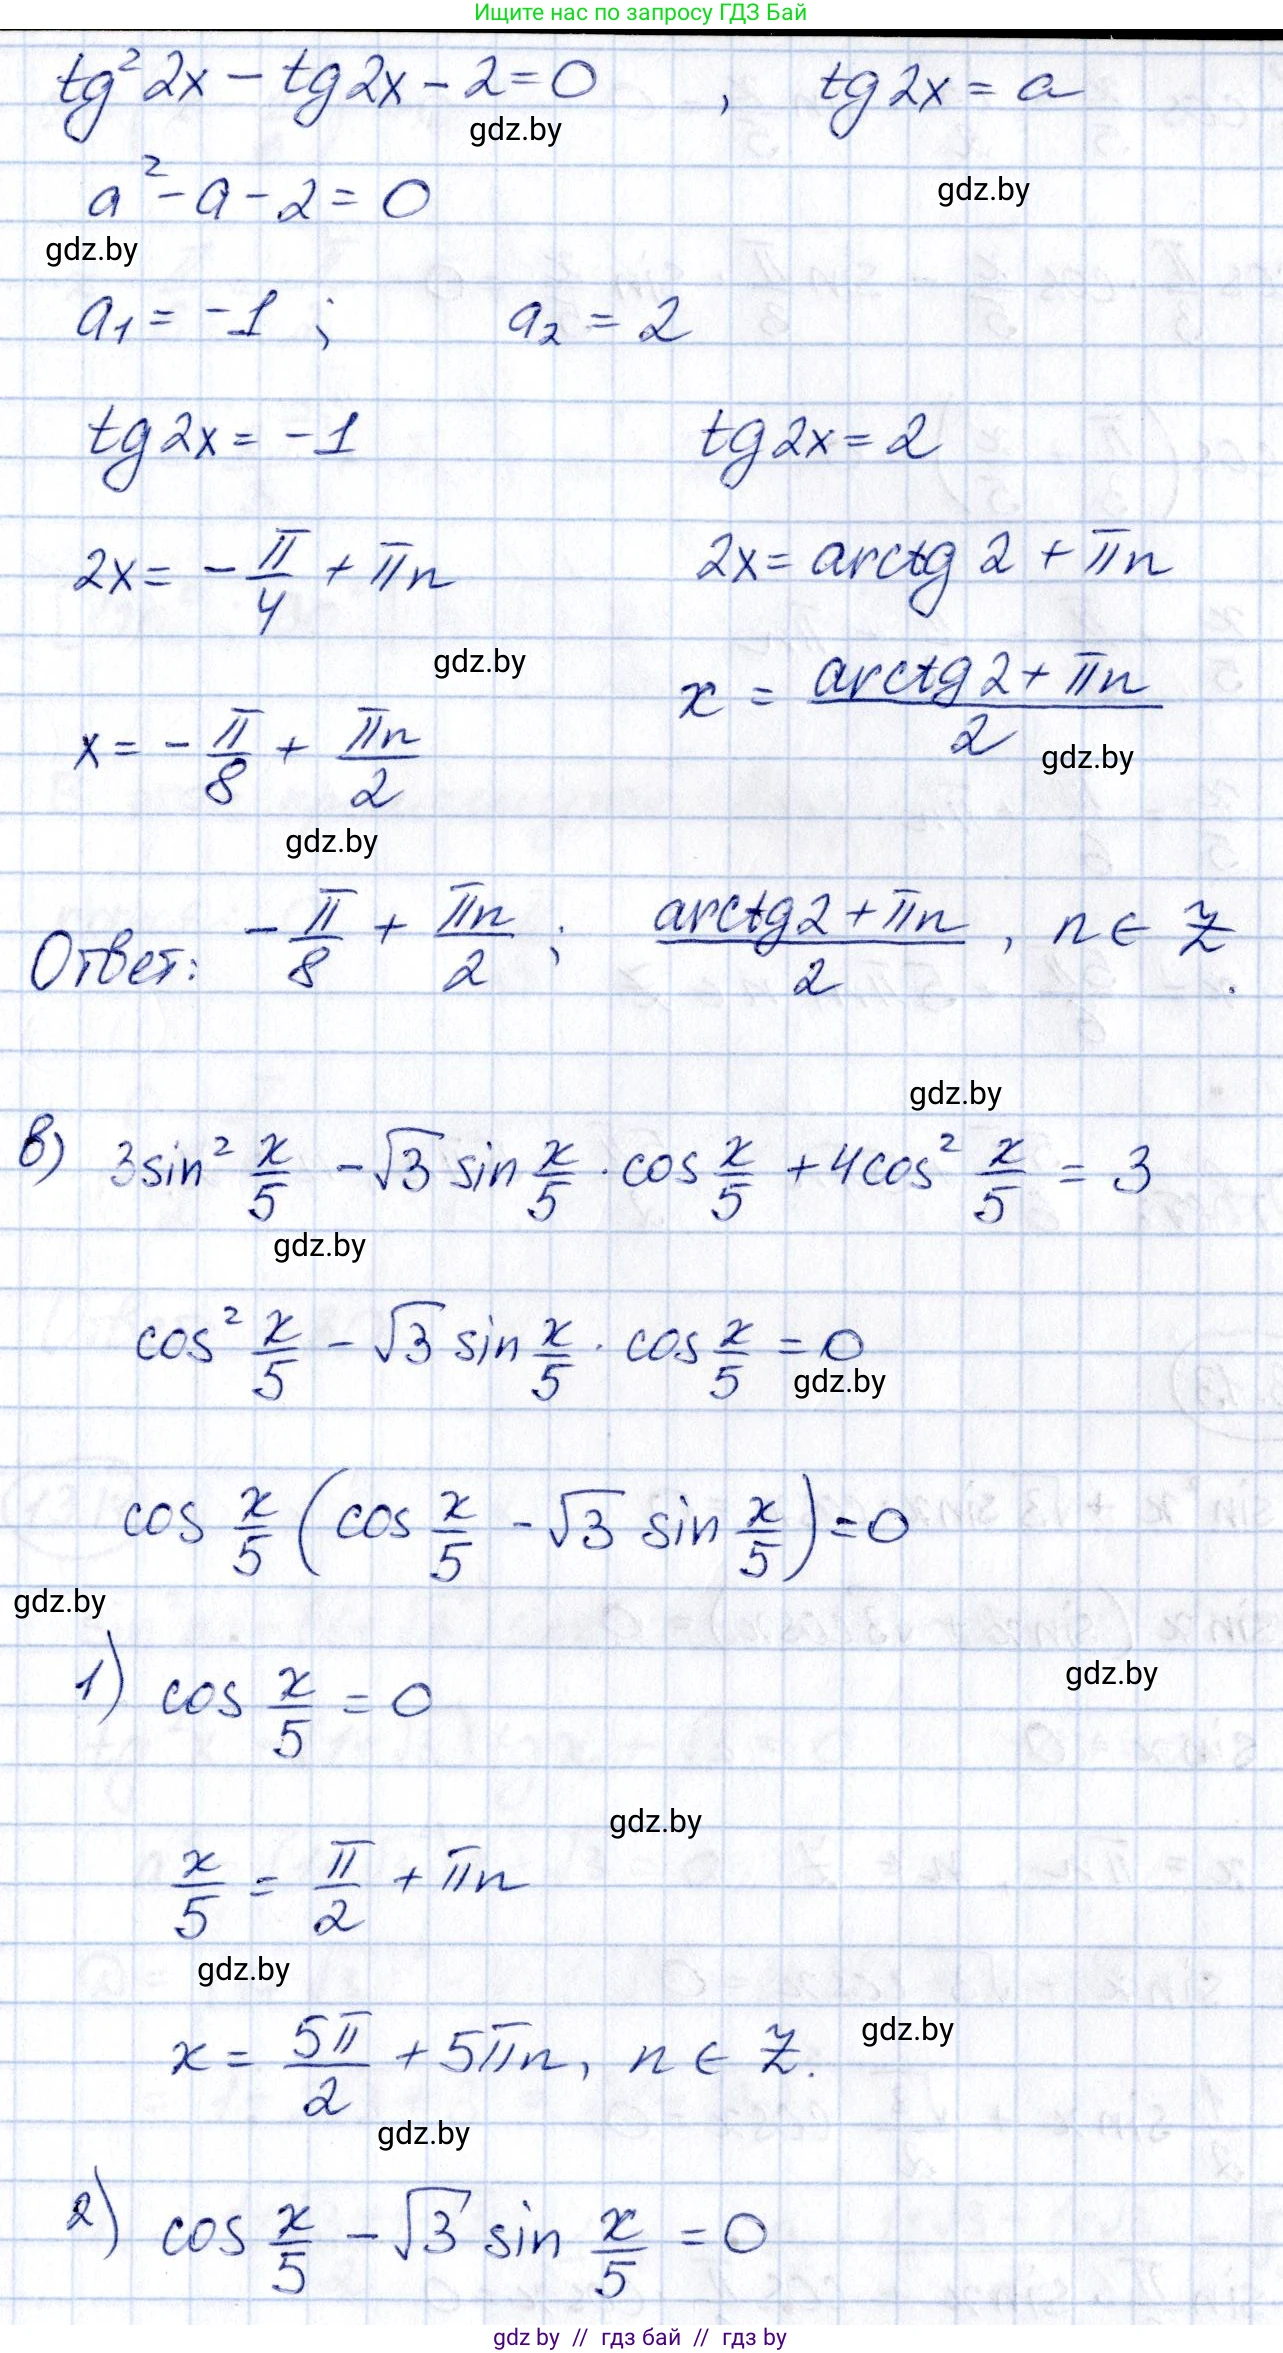 Ищите нас по запросу ГДЗ Бай
tg² 2x - tg 2x - 2 = 0 , tg 2x = a
gdz.by
a² - a - 2 = 0
gdz.by
gdz.by
a₁ = -1 ; a₂ = 2
tg 2x = -1 tg 2x = 2
2x = - π/4 + πn 2x = arctg 2 + πn
gdz.by
x = - π/8 + πn/2 x = (arctg 2 + πn)/2
gdz.by
gdz.by
Ответ: - π/8 + πn/2 ; (arctg 2 + πn)/2 , n ∈ Z.
gdz.by
в) 3sin² x/5 - √3 sin x/5 · cos x/5 + 4cos² x/5 = 3
gdz.by
cos² x/5 - √3 sin x/5 · cos x/5 = 0
gdz.by
cos x/5 (cos x/5 - √3 sin x/5) = 0
gdz.by
gdz.by
1) cos x/5 = 0
gdz.by
x/5 = π/2 + πn
gdz.by
gdz.by
x = 5π/2 + 5πn, n ∈ Z.
gdz.by
2) cos x/5 - √3 sin x/5 = 0
gdz by // гдз бай // гдз by